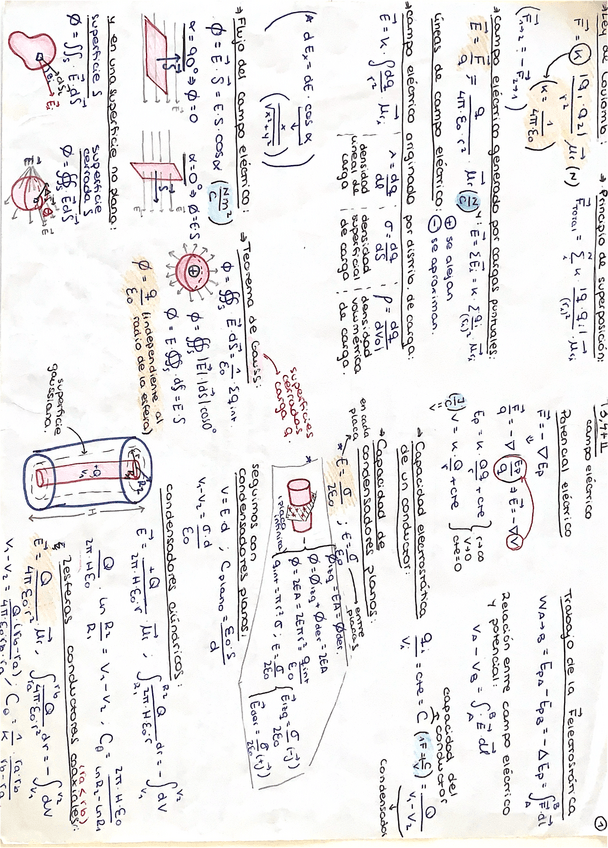 → Ley de Coulomb:
F⃗ = K · |Q·q₂| / r² · μ⃗r (N)
(K = 1 / 4πε₀)
(F⃗₁→₂ = -F⃗₂→₁)
→ Principio de superposición:
F⃗TOTAL = Σ K · |Q·qᵢ| / (rᵢ)² · μ⃗rᵢ
→ campo eléctrico generado por cargas puntuales:
E⃗ = F⃗ / q = q / 4πε₀·r² · μ⃗r (N/C) ; E⃗ = ΣE⃗ᵢ = K · Σ qᵢ / (rᵢ)² · μ⃗rᵢ
líneas de campo eléctrico: ⊕ se alejan
⊖ se aproximan
→ campo eléctrico originado por distrib. de carga:
E⃗ = K · ∫ dq / r² · μ⃗r
λ = dq / dl
densidad lineal de carga
σ = dq / dS
densidad superficial de carga
ρ = dq / dVol
densidad volumétrica de carga
* dEx = dE · cos α
(x / √x²+y²)
→ Flujo del campo eléctrico:
φ = E⃗ · S⃗ = E·S·cos α (Nm²/C)
α=90° → φ=0
α=0° → φ=ES
y en una superficie no plana:
superficie S
φ = ∬s E⃗ dS⃗
superficie cerrada S
φ = ∯s E⃗ dS⃗
→ Teorema de Gauss:
superficies cerradas carga Q.
φ = ∯s E⃗·dS⃗ = 1/ε₀ · Σq int.
φ = ∯s |E⃗|·|dS⃗| cos 0°
φ = E ∯s dS = E·S
φ = q / ε₀ (independiente al radio de la esfera)
superficie gaussiana.
T3, 4 + 11
campo eléctrico
Potencial eléctrico
F⃗ = -∇Ep
F⃗/q = -∇ (Ep/q) → E⃗ = -∇V
Ep = K · Qq / r + cte
V = K · Q / r + cte
r→∞
V→0
cte=0
Trabajo de la F⃗electrostática
WA→B = EpA - EpB = -ΔEp = ∫ F⃗ dl
Relación entre campo eléctrico y potencial:
VA - VB = ∫ E⃗ dl
→ Capacidad electrostática de un conductor:
q₁ / V₁ = cte = C (1F = C/V) = Q / V₁-V₂
capacidad del conductor
condensador
→ Capacidad de condensadores planos.
* E = σ / 2ε₀ ; E = σ / ε₀
en cada placa
entre placas
φizq = EA = φder
φ = φizq + φder = 2EA
φ = 2EA = 2Eπr² = q int / ε₀
q int = πr² σ ; E = σ / 2ε₀
placa infinita
E⃗izq = σ / 2ε₀ (-j⃗)
E⃗der = σ / 2ε₀ (+j⃗)
seguimos con condensadores planos:
V = E·d ; C plano = ε₀·S / d
V₁-V₂ = σ·d / ε₀
condensadores cilíndricos:
E⃗ = +Q / 2π·Hε₀·r · μ⃗r , ∫ Q / 2π·Hε₀·r dr = -∫ dV
Q / 2π·Hε₀ · ln R₂/R₁ = V₁-V₂ , C₀ = 2π·H·ε₀ / lnR₂-lnR₁
2 esferas conductoras coaxiales: (ra<rb)
E⃗ = Q / 4πε₀·r² · μ⃗r , ∫ Q / 4πε₀·r² dr = -∫ dV
V₁-V₂ = Q·(rb-ra) / 4πε₀·rb·ra , C₀ = 1/K · ra·rb / rb-ra